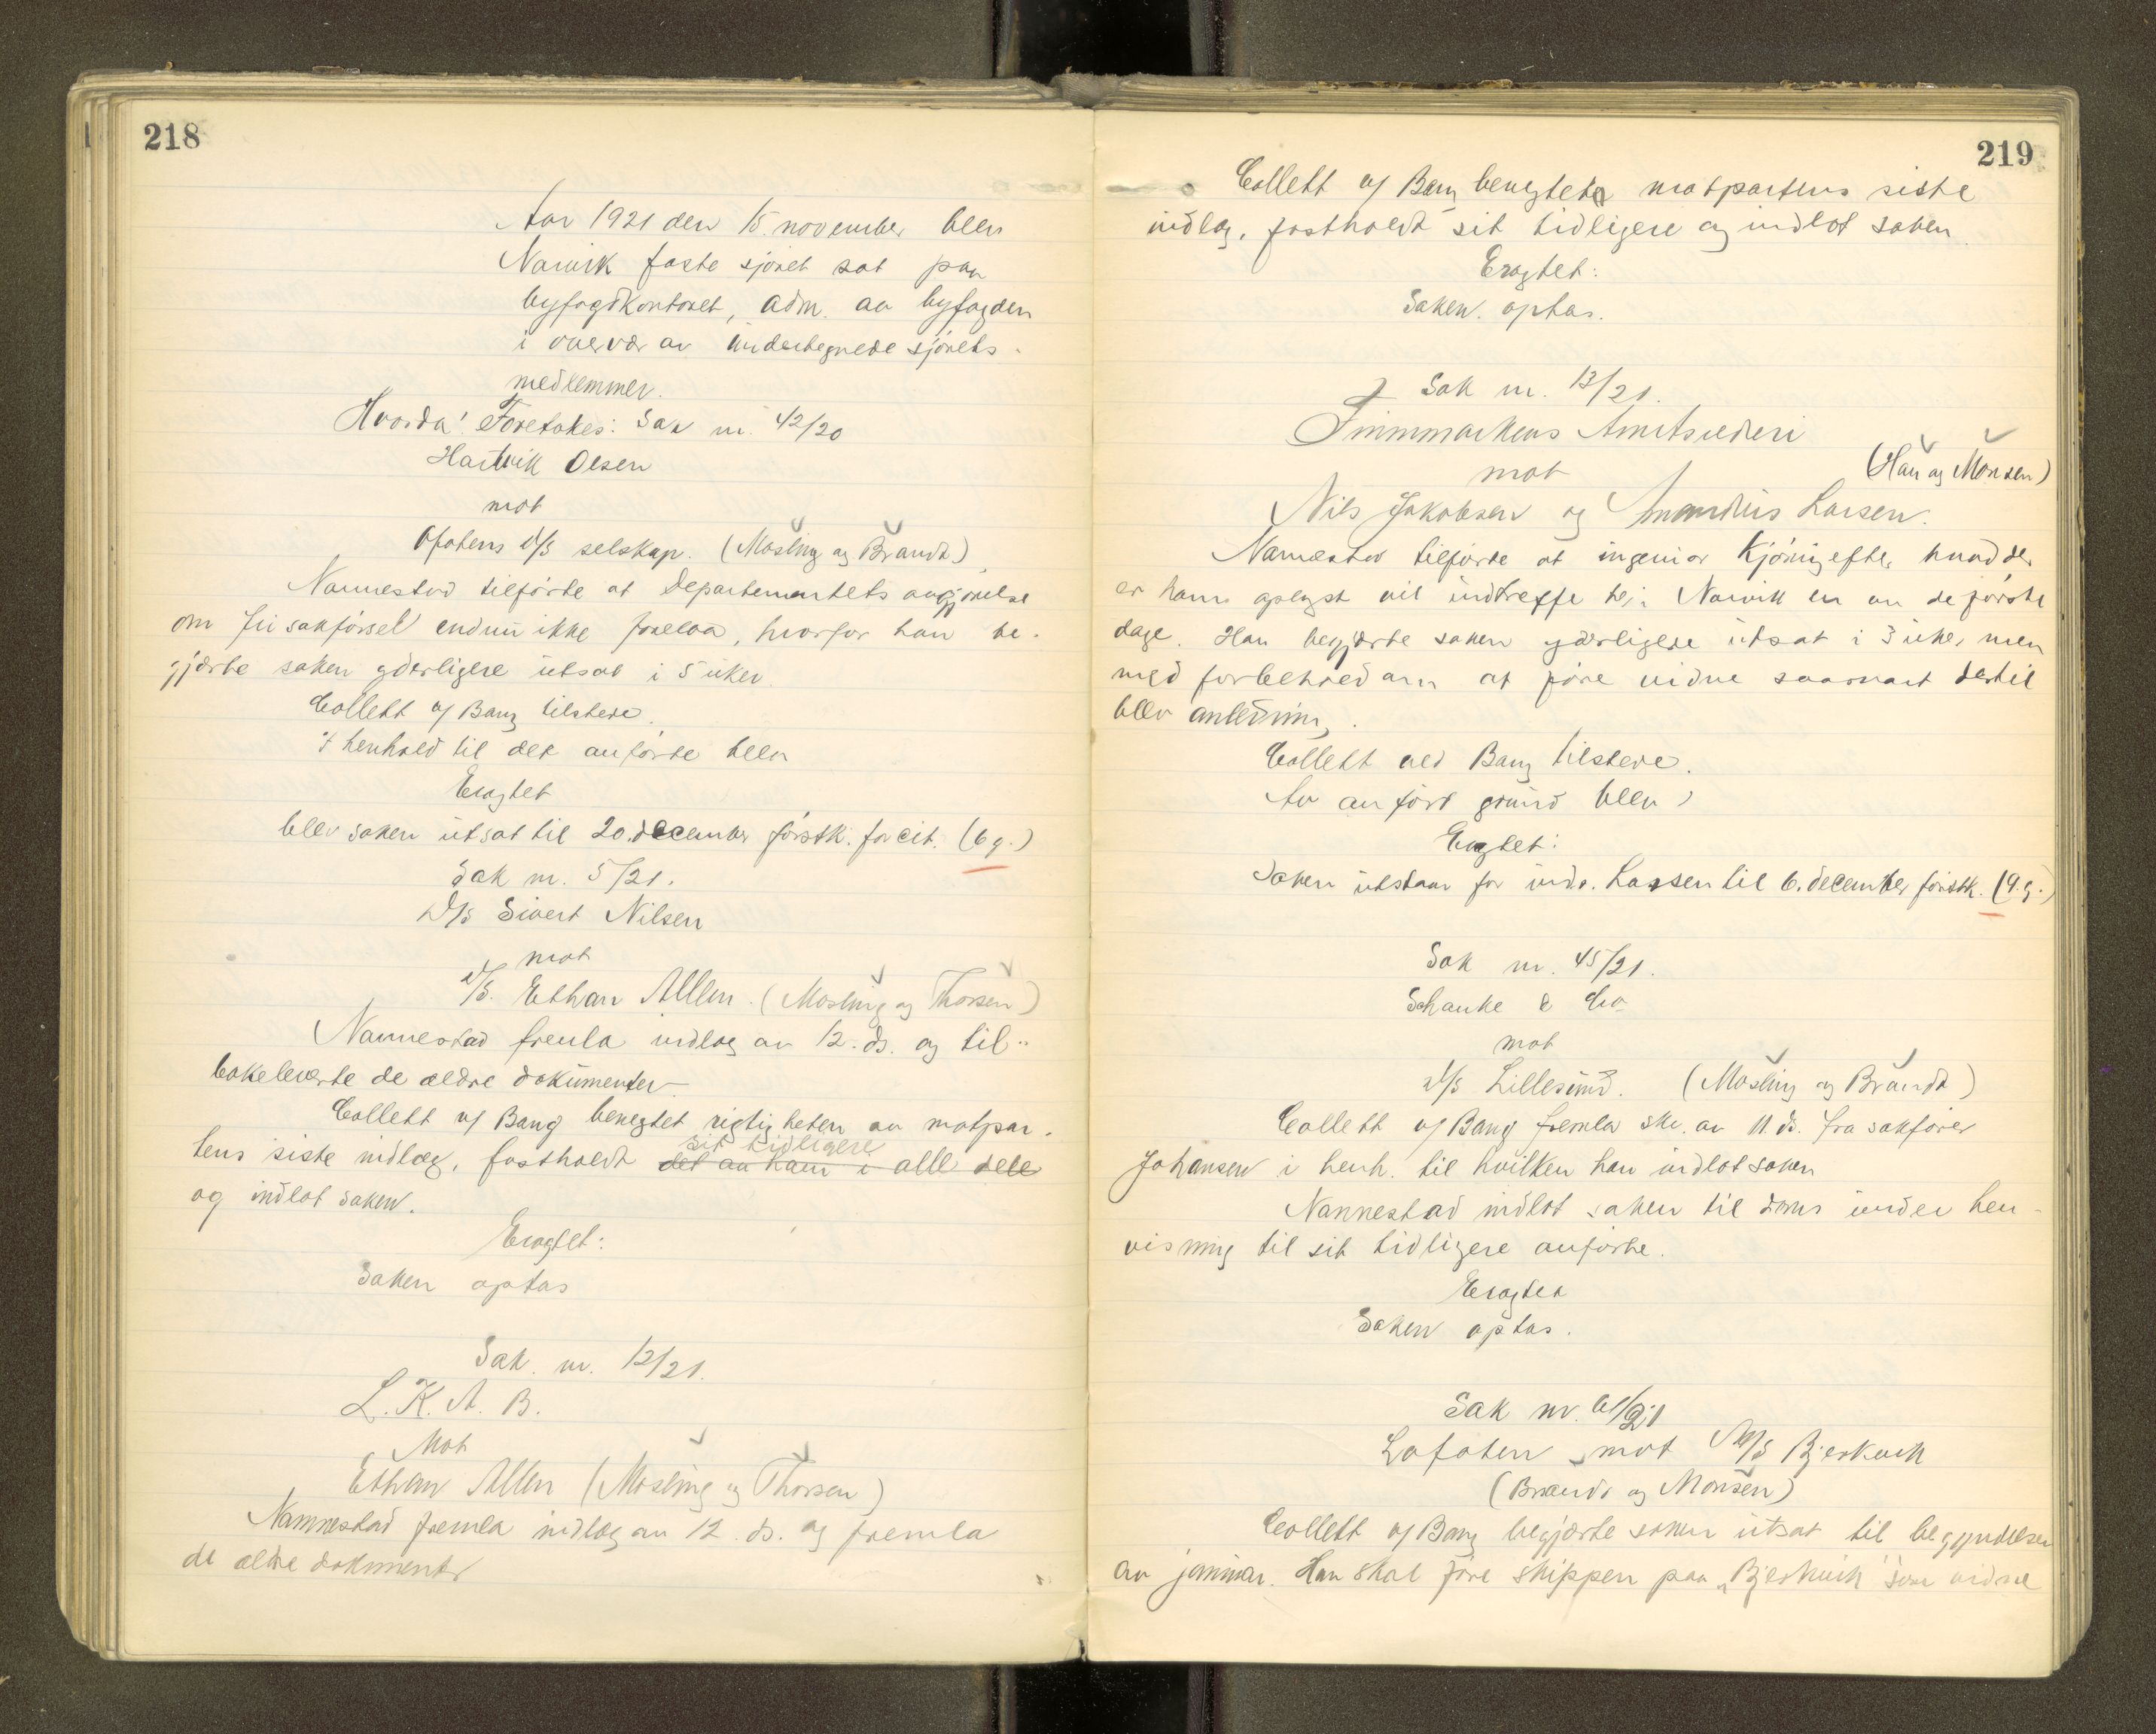 218
Aar 1921 den 15. november blev
Narvik faste sjøret sat paa
byfogdkontoret, adm. av byfogden
i overvær av undertegnede sjørets-
medlemmer.
Hvorda! Foretokes: Sak nr. 42/20
Hartvik Olsen
mot
Ofotens D/S selskap. (Mosling og Brandt)
Nannestad tilførte at Departementets avgjørelse
om fri sakførsel endnu ikke forelaa, hvorfor han be-
gjærte saken yderligere utsat i 5 uker
Collett v/ Bang tilstede.
I henhold til det anførte blev
Eragtet
blev saken utsat til 20. december førstk. for cit. (6 g.)
Sak nr. 5/21.
D/S Sivert Nilsen
mot
D/S. Ethan Allen. (Mosling og Thorsen)
Nannestad fremla indlæg av 12. ds. og til-
bakeleverte de ældre dokumenter
Collett v/ Bang benegtet rigtigheten av motpar-
tens siste indlæg, fastholdt det av ham i alle dele
sit tidligere
og indlot saken.
Eragtet:
Saken optas
Sak. nr. 12/21.
L.K.A.B.
Mot
Ethan Allen (Mosling og Thorsen)
Nannestad fremla indlæg av 12. ds. og fremla
de ældre dokumenter
219
Collett v/ Bang benegtet motpartens siste
indlæg, fastholdt sit tidligere og indlot saken
Eragtet:
Saken. optas.
Sak nr. 13/21.
Finmarkens Amtsrederi
mot
(Hau og Monsen)
Nils Jakobsen og Amandus Larsen.
Nannestad tilførte at ingeniør Kjönig efter hvad der
er ham oplyst vil indtreffe til Narvik en av de første
dage. Han begjærte saken yderligere utsat i 3 uker men
med forbehold om at føre vidne saasnart dertil
blev anledning.
Collett ved Bang tilstede.
Av anført grund blev
Eragtet:
Saken utstaar for indr. Larsen til 6. december førstk. (9. g.)
Sak nr. 45/21.
Schanke & Co
mot
D/S Lillesund. (Mosling og Brandt)
Collett v/ Bang fremla skr. av 11. ds. fra sakfører
Johansen i henh. til hvilken han indlot saken
Nannestad indlot saken til doms under hen-
visning til sit tidligere anførte.
Eragtet
Saken optas.
Sak nr. 61/21
Lofoten mot M/S Bjerkvik
(Brandt og Monsen)
Collett v/ Bang begjærte saken utsat til begyndelsen
av januar. Han skal føre skipperen paa "Bjerkvik" som vidne